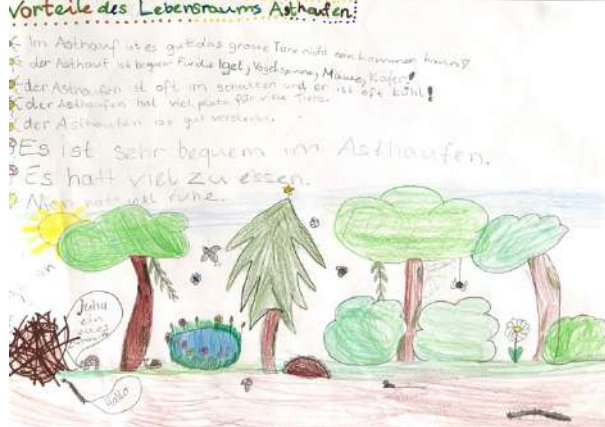 Vorteile des Lebensraums Asthaufen:
Im Asthauf ist es gut das grosse Tiere nicht rein kommen
der Asthauf ist bequem für die Igel, Vogelspinne, Mäuse, Käfer!
der Asthaufen ist oft im schatten und er ist oft kühl!
der Asthaufen hat viel platz für viele Tiere.
der Asthaufen ist gut versteckt.
Es ist sehr bequem im Asthaufen.
Es hatt viel zu essen.
Man hatt viel ruhe.
Juhu
ein
Hallo